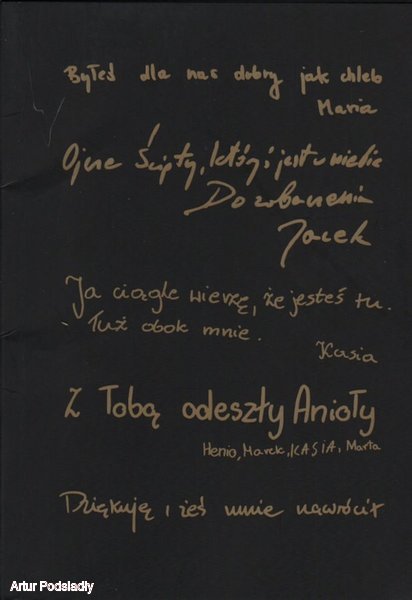 Byłeś dla nas dobry jak chleb
Maria
Ojcze Święty, który jest w niebie
Do zobaczenia
Jacek
Ja ciągle wierzę, że jesteś tu.
Tuż obok mnie.
Kasia
Z Tobą odeszły Anioły
Henio, Marek, KASIA, Marta
Dziękuję i żeś mnie nawrócił
Artur Podsiadły